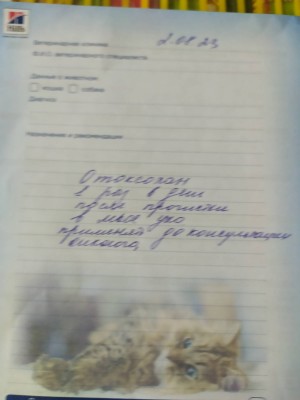 Hill's
Ветеринарная клиника 2.08.23
Ф.И.О. ветеринарного специалиста
Данные о животном:
кошка собака
Диагноз
Назначения и рекомендации
Отоксолан
1 раз в день
после прочистки
в ухо
применять до консультации
онколога